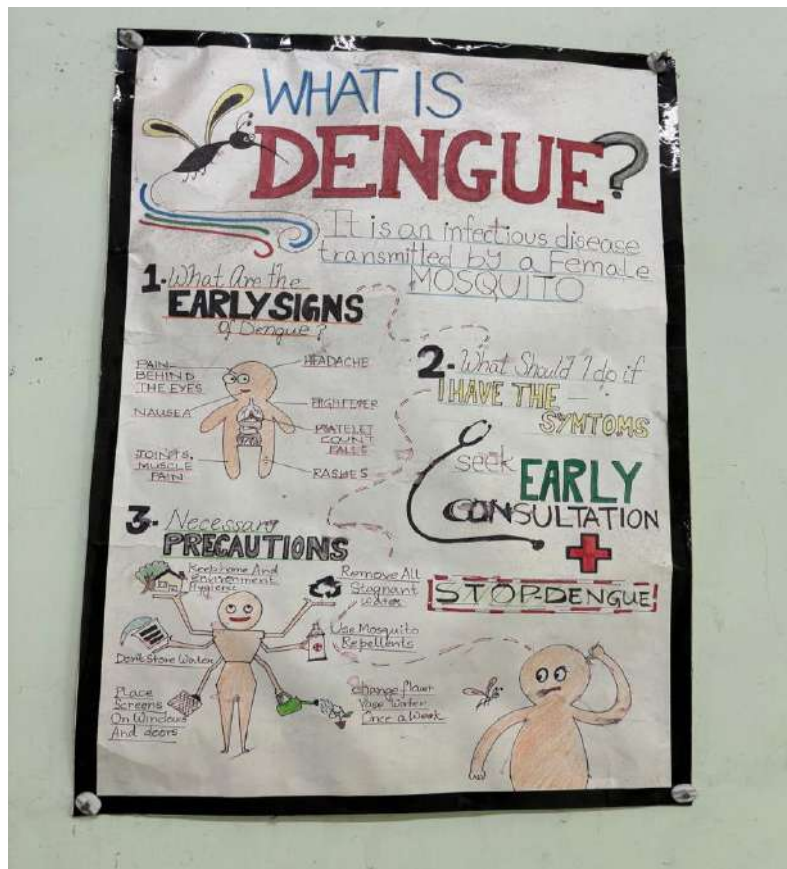 WHAT IS
DENGUE?
It is an infectious disease
transmitted by a Female
MOSQUITO
1. What Are the
EARLY SIGNS
of Dengue?
PAIN
BEHIND
THE EYES
NAUSEA
JOINTS,
MUSCLE
PAIN
HEADACHE
HIGH FEVER
PLATELET
COUNT
FALLS
RASHES
2. What Should I do if
I HAVE THE
SYMTOMS
seek EARLY
CONSULTATION
STOP DENGUE!
3. Necessary
PRECAUTIONS
Keep home And
Environment
Hygienic
Remove All
Stagnant
water
Don't Store Water
Use Mosquito
Repellents
Place
Screens
On Windows
And doors
Change flower
Vase Water
Once a Week